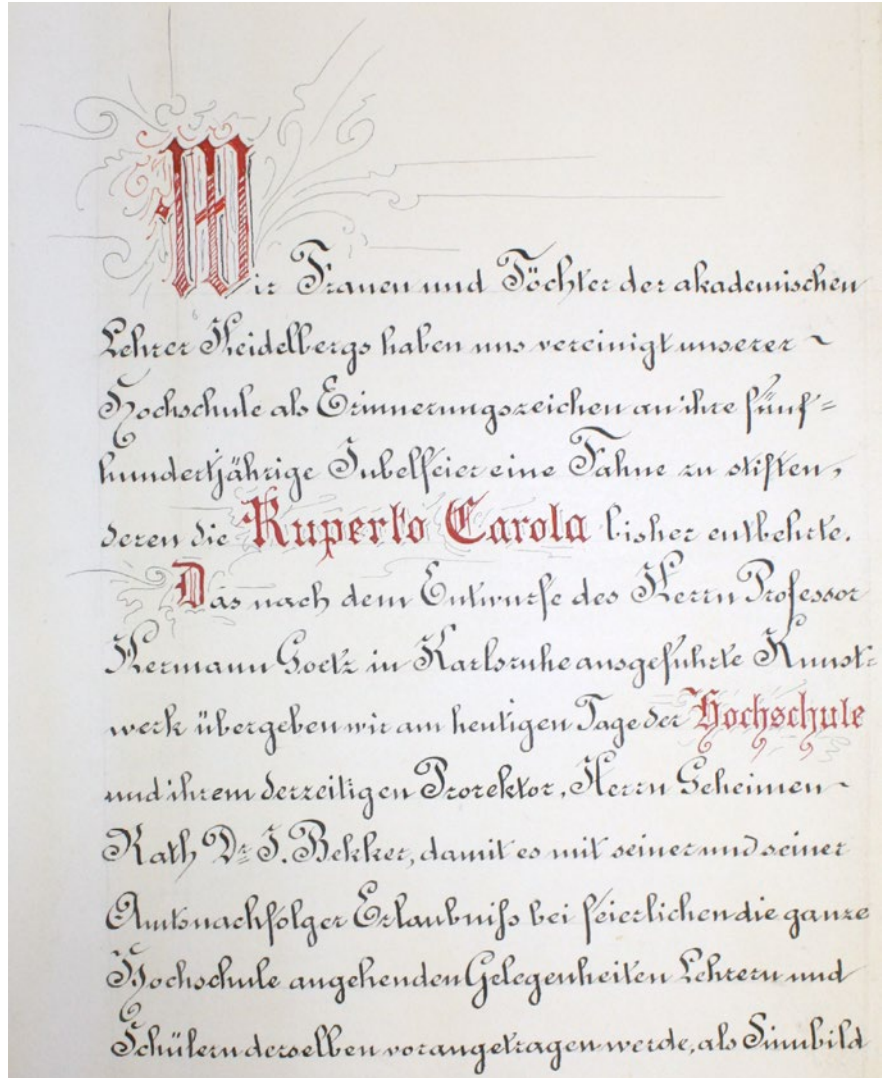 Wir Frauen und Töchter der akademischen
Lehrer Heidelbergs haben uns vereinigt unserer ~
Hochschule als Erinnerungszeichen an ihre fünf=
hundertjährige Jubelfeier eine Fahne zu stiften,
deren die Ruperto Carola bisher entbehrte.
Das nach dem Entwurfe des Herrn Professor
Hermann Goetz in Karlsruhe ausgeführte Kunst=
werk übergeben wir am heutigen Tage der Hochschule
und ihrem derzeitigen Prorektor, Herrn Geheimen ~
Rath Dr. I. Bekker, damit es mit seiner und seiner
Amtsnachfolger Erlaubniß bei feierlichen die ganze
Hochschule angehenden Gelegenheiten Lehrern und
Schülern derselben vorangetragen werde, als Sinnbild